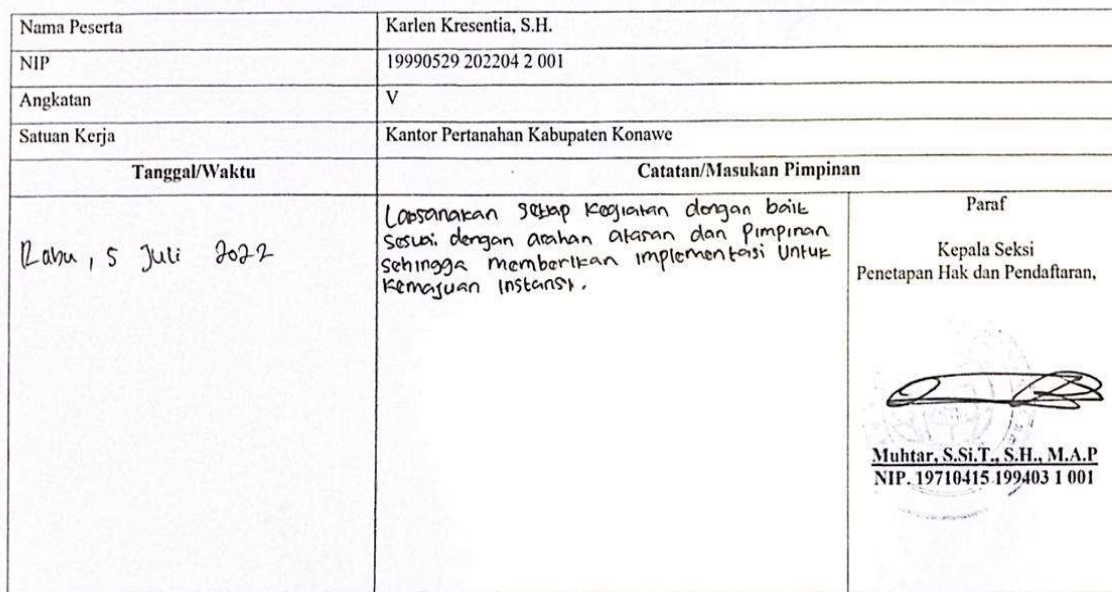 Nama Peserta Karlen Kresentia, S.H.
NIP 19990529 202204 2 001
Angkatan V
Satuan Kerja Kantor Pertanahan Kabupaten Konawe
Tanggal/Waktu Catatan/Masukan Pimpinan
Rabu, 5 Juli 2022
Laksanakan setiap kegiatan dengan baik
sesuai dengan arahan atasan dan pimpinan
sehingga memberikan implementasi untuk
kemajuan instansi.
Paraf
Kepala Seksi
Penetapan Hak dan Pendaftaran,
Muhtar, S.Si.T., S.H., M.A.P
NIP. 19710415 199403 1 001